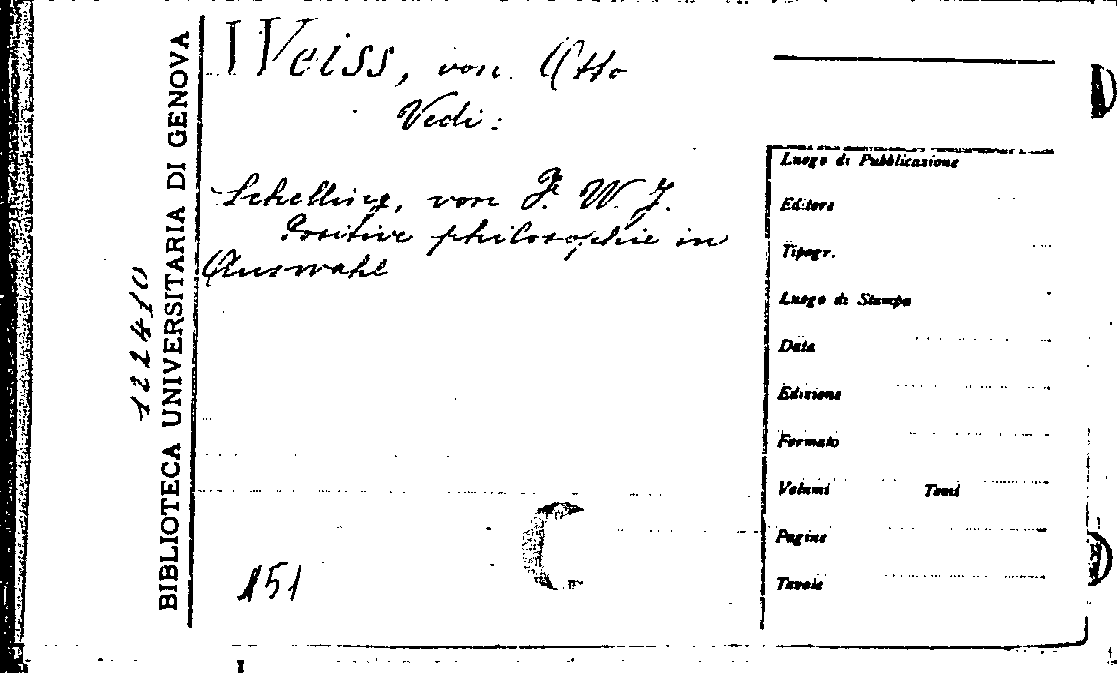 Weiss, von Otto
Vedi:
Schelling, von F. W. J.
Positive philosophie in
Auswahl
151
122410
BIBLIOTECA UNIVERSITARIA DI GENOVA
Luogo di Pubblicazione
Editore
Tipogr.
Luogo di Stampa
Data
Edizione
Formato
Volumi Tomi
Pagine
Tavole